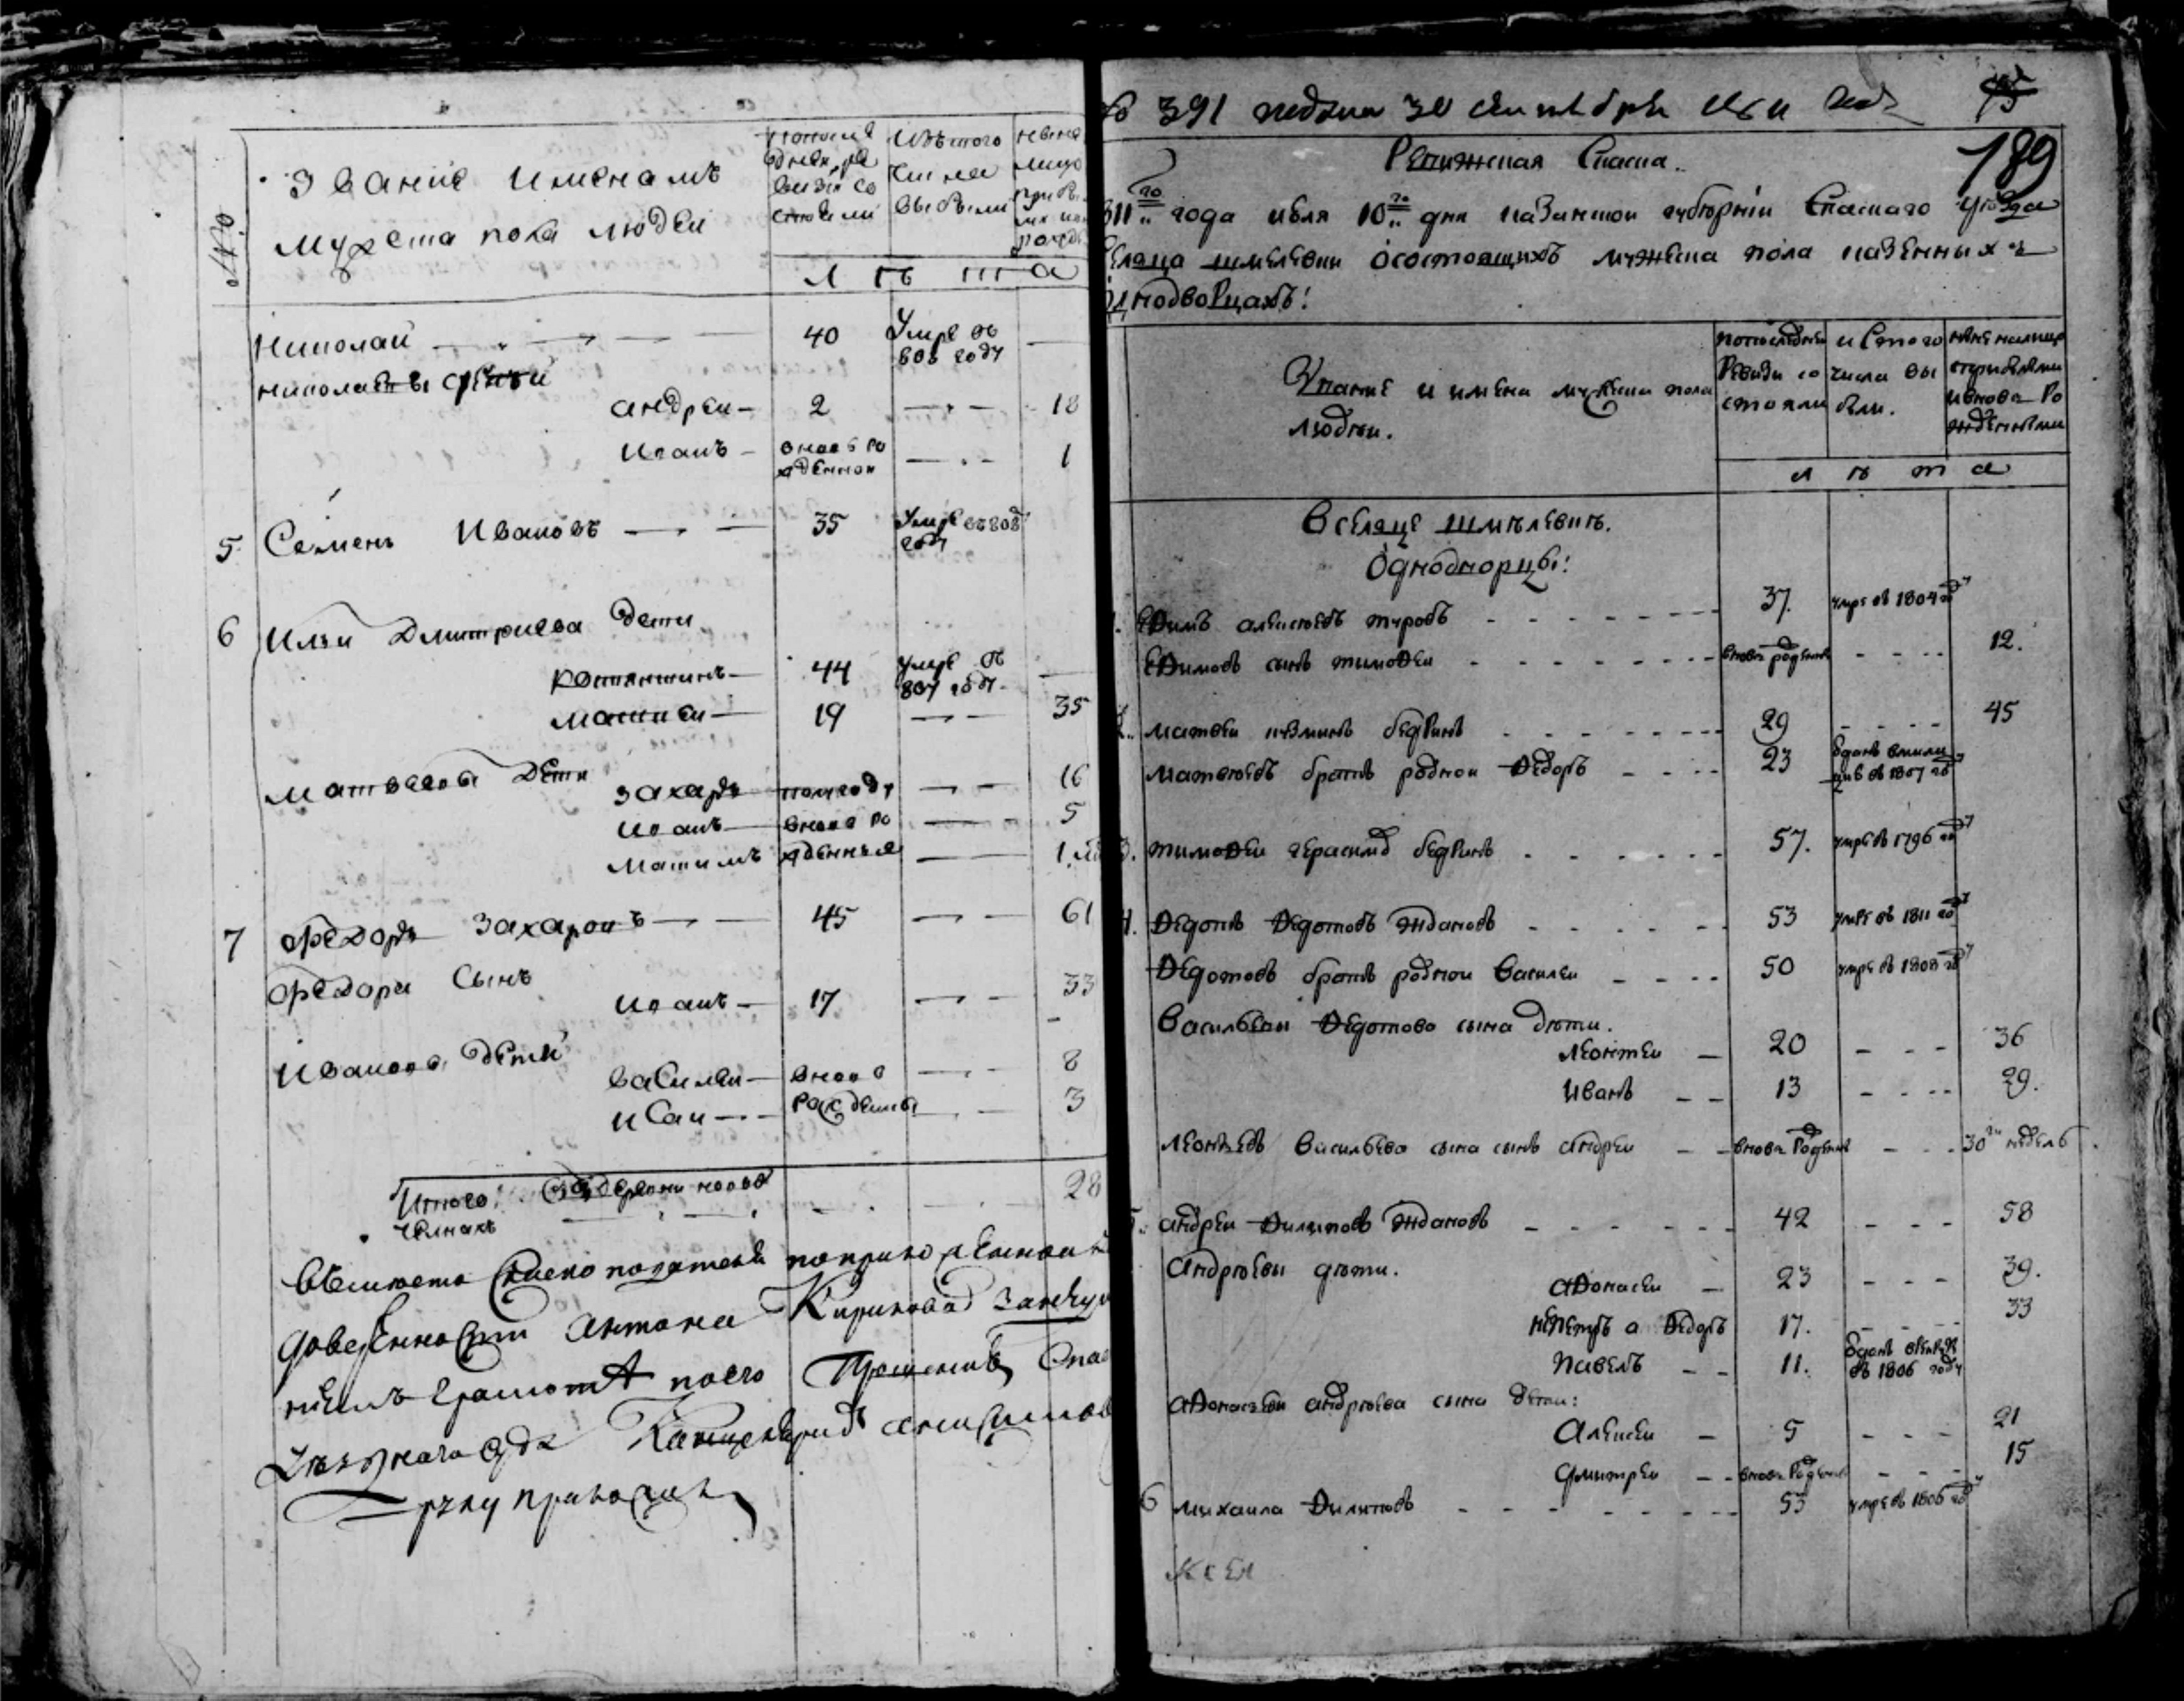 №
Званiе именамъ
мужеска пола людей
После
дней ре
визiи со
стояли
Изъ того
числа
выбыли
Ныне на
лицо
лѣта
Николай 40 Умре въ 806 году
Николаевы дети
Андреи 2 18
Иванъ вновь рожденной 1
5 Семенъ Ивановъ 35 Умре въ 808 году
6 Ильи Дмитриева дети
Костянтинъ 44 Умре въ 807 году
Матвеи 19 35
Матвеевы дети
Захаръ полгоду 16
Иванъ вновь ро 5
Максимъ жденныя 1
7 Федоръ Захаровъ 45 61
Федора сынъ
Иванъ 17 33
Ивановы дети
Василеи вновь 8
Исаи рождены 3
Итого 28
доверенности Антона Кирилова за неуме
нiемъ грамоте по его прошенiю Спас
уезднаго суда Канцеляристъ Анисимов
руку приложилъ
№ 391 подана 30 сентября 1811 года
189
Ревижская Скаска.
811го года июля 10го дня казанской губернiи Спаскаго уѣзда
сельца Шмелевки о состоящихъ мужеска пола казенныхъ
однодворцахъ:
Званiе и имена мужеска пола
людеи.
по последней
ревизи со
стояли
ис того
числа вы
были.
ныне налицо
с прибылыми
и вновь ро
жденными
лѣта
В сельце Шмѣлевкѣ.
Однодворцы:
1. Ефимъ Алексѣевъ Туровъ 37. умре въ 1804 году
Ефимовъ сынъ Тимофеи вновь рожденъ 12.
2. Матвеи Кузминъ Бедринъ 29 45
Матвѣевъ братъ роднои Федоръ 23 отданъ в мили
цию въ 1807 году
3. Тимофеи Герасимовъ Бедринъ 57. умре въ 1796 году
4. Федотъ Федотовъ Ждановъ 53 умре въ 1811 году
Федотовъ братъ роднои Василеи 50 умре въ 1808 году
Васильевы Федотова сына дѣти.
Леонтеи 20 36
Иванъ 13 29.
Леонтьевъ Васильева сына сынъ Андреи вновь рожденъ 30ти недель
5. Андреи Филиповъ Ждановъ 42 58
Андрѣевы дѣти.
Афонасеи 23 39.
не Петръ а Федоръ 17. 33
Павелъ 11. отданъ в рекруты
въ 1806 году
Афонасьевы Андрѣева сына дети:
Алексеи 5 21
Дмитреи вновь рожденъ 15
6 Михаила Филиповъ 53 умре въ 1806 году